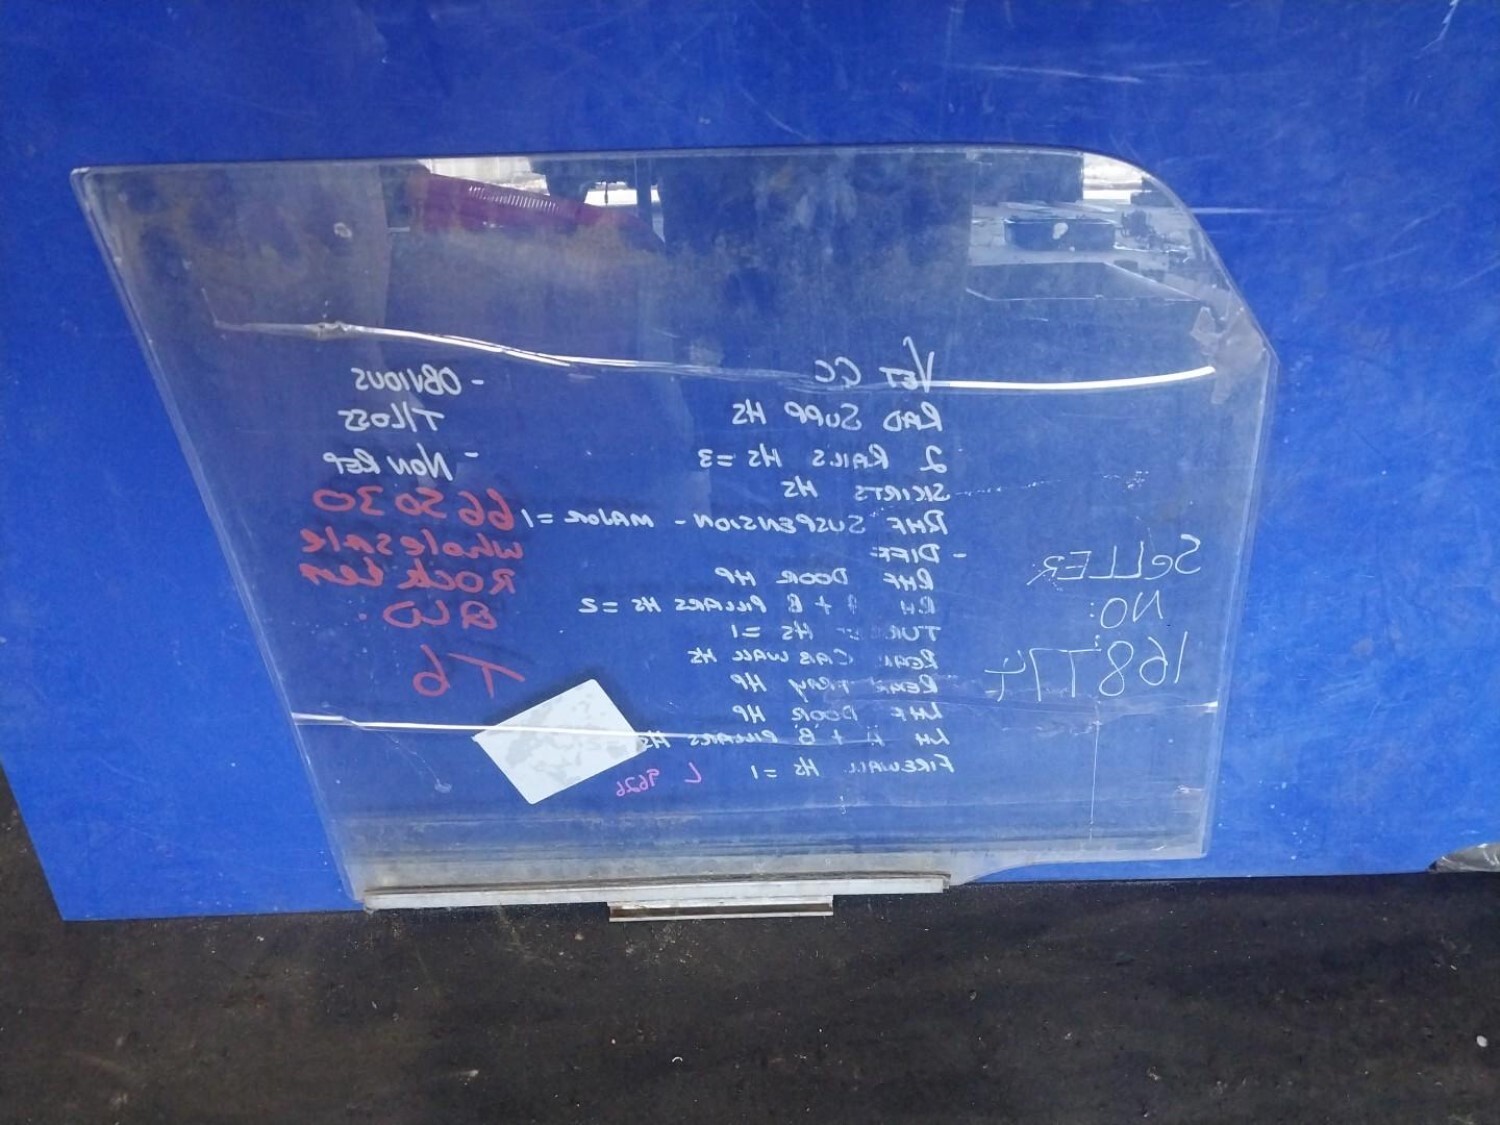 SELLER
NO:
168T74
VET CC
RAD SUPP HS
2 RAILS HS = 3
SKIRTS HS
RHF SUSPENSION - MAJOR = 1
- DIFF
RHF DOOR HP
RH + B PILLARS HS = 2
HS = 1
REAR CAB WALL HS
REAR TRAY HP
LHF DOOR HP
LH A + B PILLARS HS
FIREWALL HS = 1
L 9626
- OBVIOUS
T/LOSS
- NON REP
665030
wholesale
Rocklea
QLD.
T6